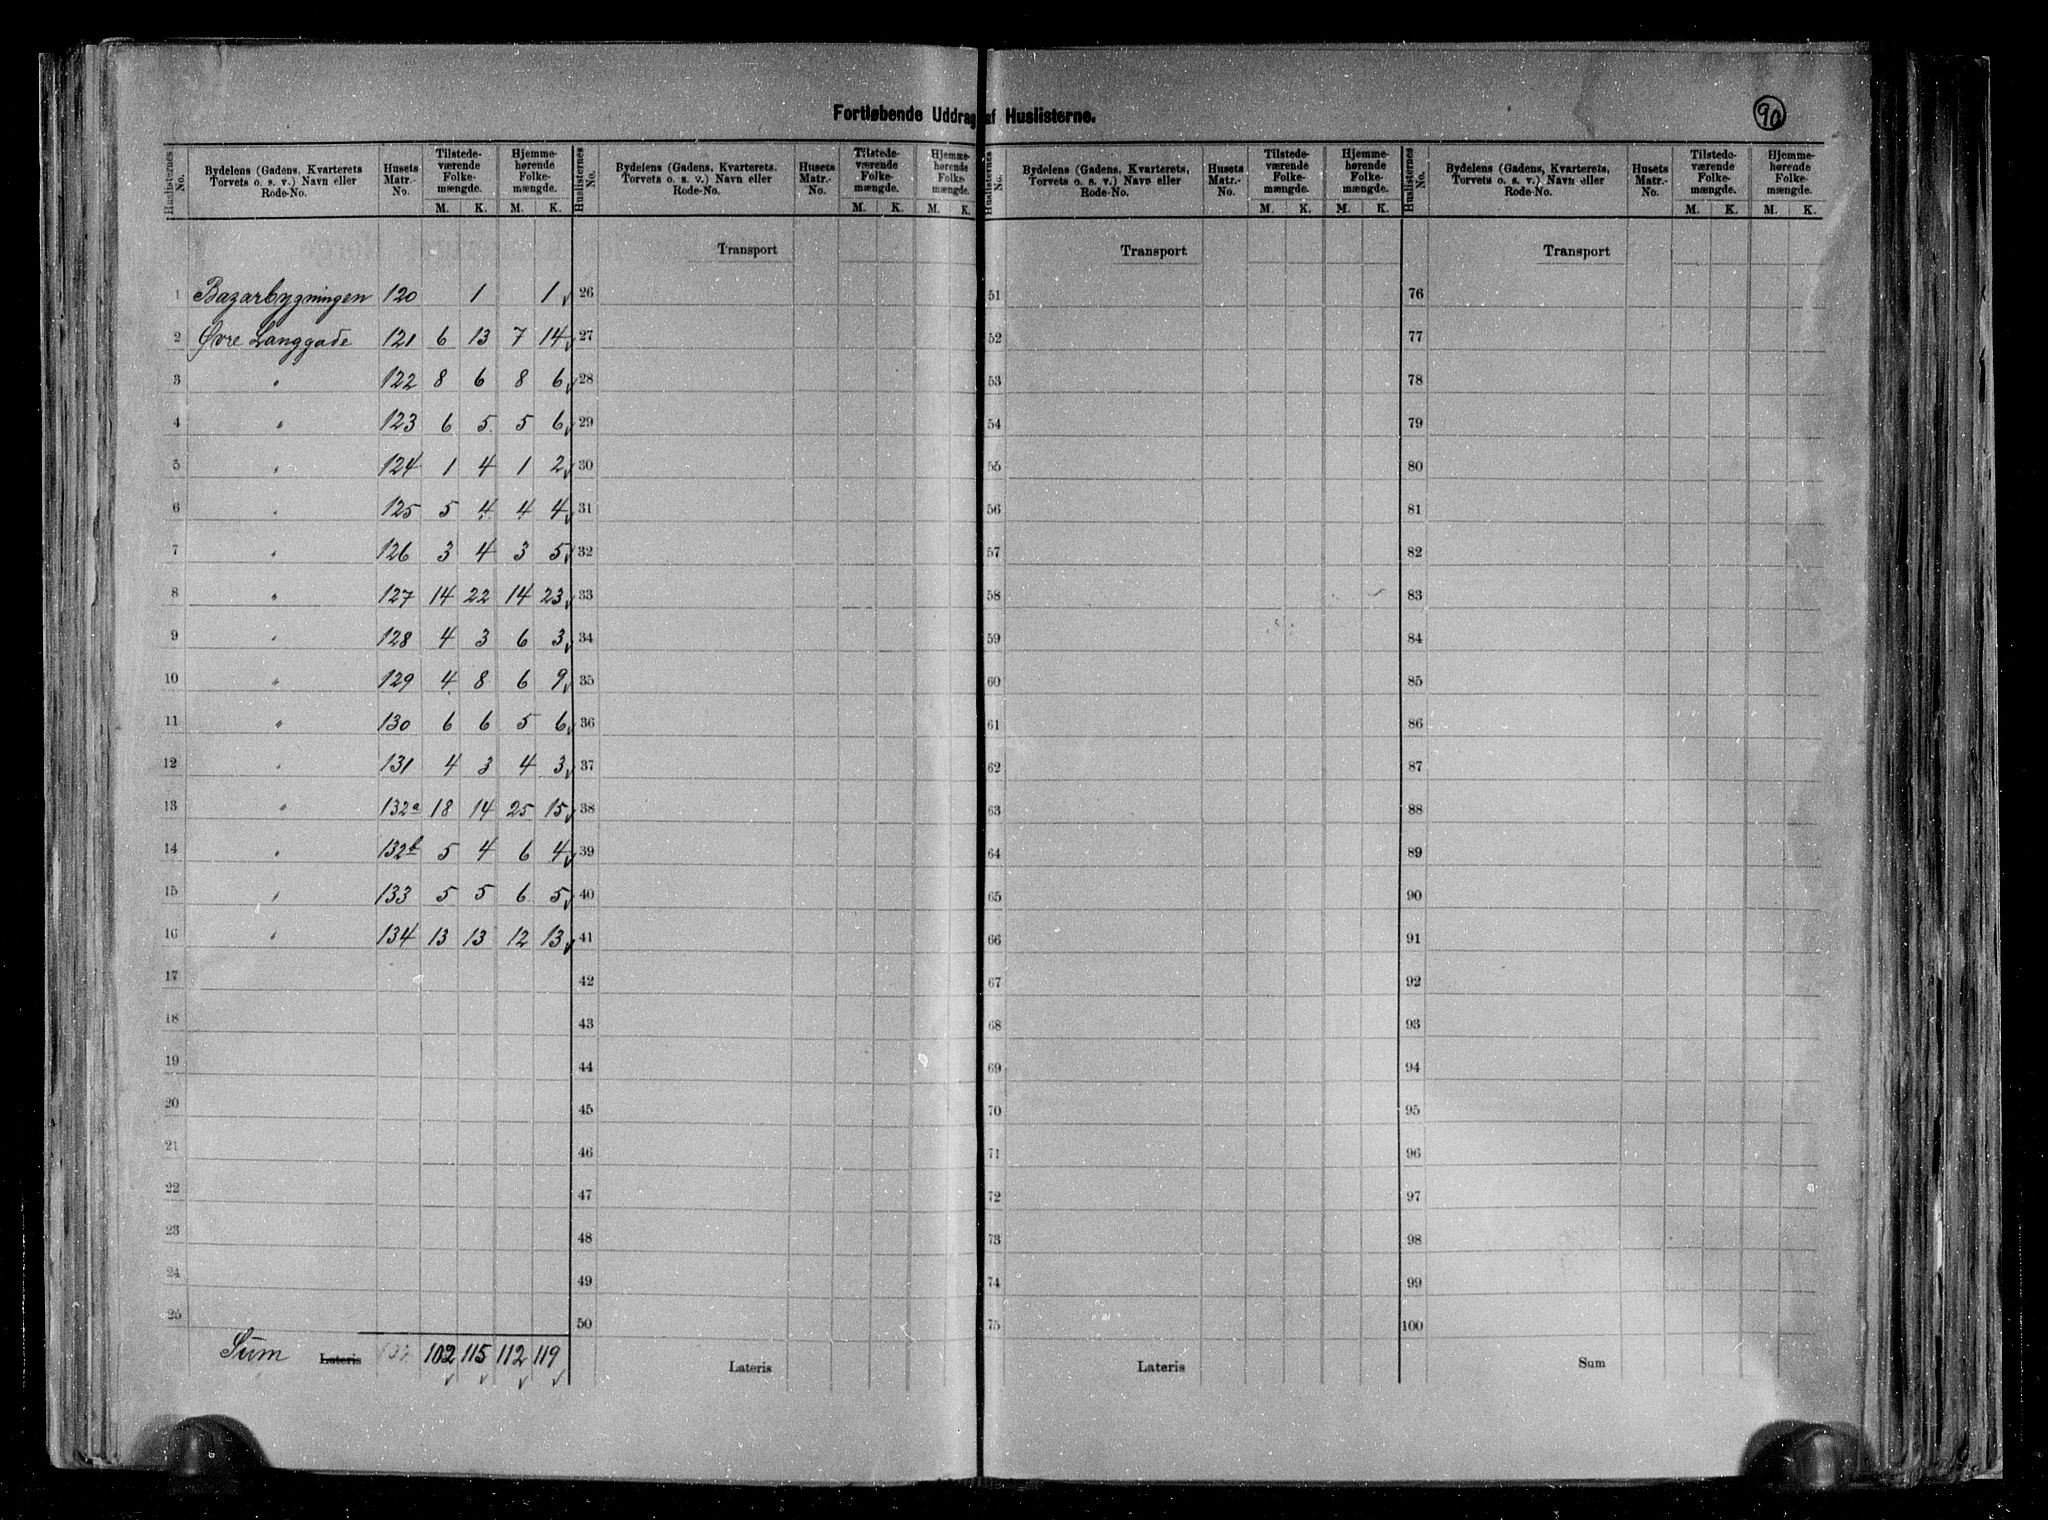 Fortløbende Uddrag af Huslisterne.
90
Huslisternes No. | Bydelens (Gadens, Kvarterets Torvets o. s. v.) Navn eller Rode-No. | Husets Matr.-No. | Tilstede-værende Folke-mængde. M. K. | Hjemme-hørende Folke-mængde. M. K.
Huslisternes No. | Bydelens (Gadens, Kvarterets, Torvets o. s. v.) Navn eller Rode-No. | Husets Matr.-No. | Tilstede-værende Folke-mængde. M. K. | Hjemme-hørende Folke-mængde. M. K.
Huslisternes No. | Bydelens (Gadens, Kvarterets, Torvets o. s. v.) Navn eller Rode-No. | Husets Matr.-No. | Tilstede-værende Folke-mængde. M. K. | Hjemme-hørende Folke-mængde. M. K.
Huslisternes No. | Bydelens (Gadens, Kvarterets, Torvets o. s. v.) Navn eller Rode-No. | Husets Matr.-No. | Tilstede-værende Folke-mængde. M. K. | Hjemme-hørende Folke-mængde. M. K.
Transport Transport Transport
1 Bazarbygningen 120 1 1 26 51 76
2 Øvre Langgade 121 6 13 7 14 27 52 77
3 " 122 8 6 8 6 28 53 78
4 " 123 6 5 5 6 29 54 79
5 " 124 1 4 1 2 30 55 80
6 " 125 5 4 4 4 31 56 81
7 " 126 3 4 3 5 32 57 82
8 " 127 14 22 14 23 33 58 83
9 " 128 4 3 6 3 34 59 84
10 " 129 4 8 6 9 35 60 85
11 " 130 6 6 5 6 36 61 86
12 " 131 4 3 4 3 37 62 87
13 " 132a 18 14 25 15 38 63 88
14 " 132b 5 4 6 4 39 64 89
15 " 133 5 5 6 5 40 65 90
16 " 134 13 13 12 13 41 66 91
17 42 67 92
18 43 68 93
19 44 69 94
20 45 70 95
21 46 71 96
22 47 72 97
23 48 73 98
24 49 74 99
25 50 75 100
Sum Lateris 102 115 112 119 Lateris Lateris Sum